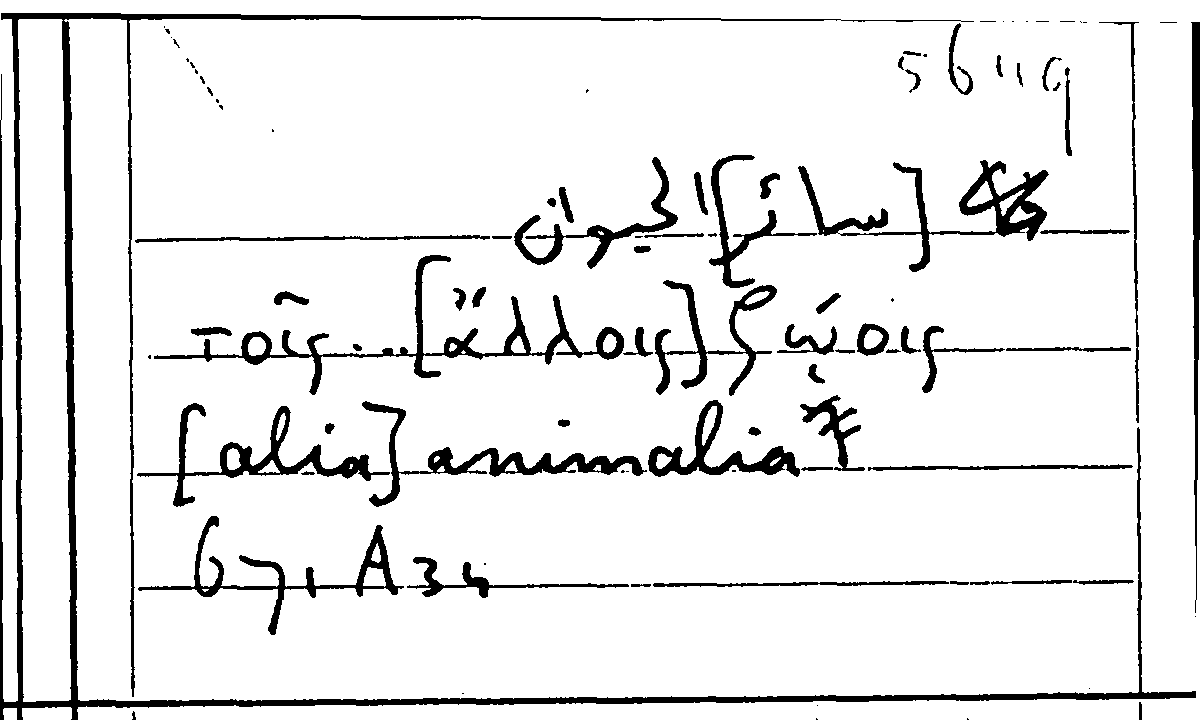 [سائر] الحيوان
τοῖς...[ἄλλοις] ζῴοις
[alia] animalia
671 A34